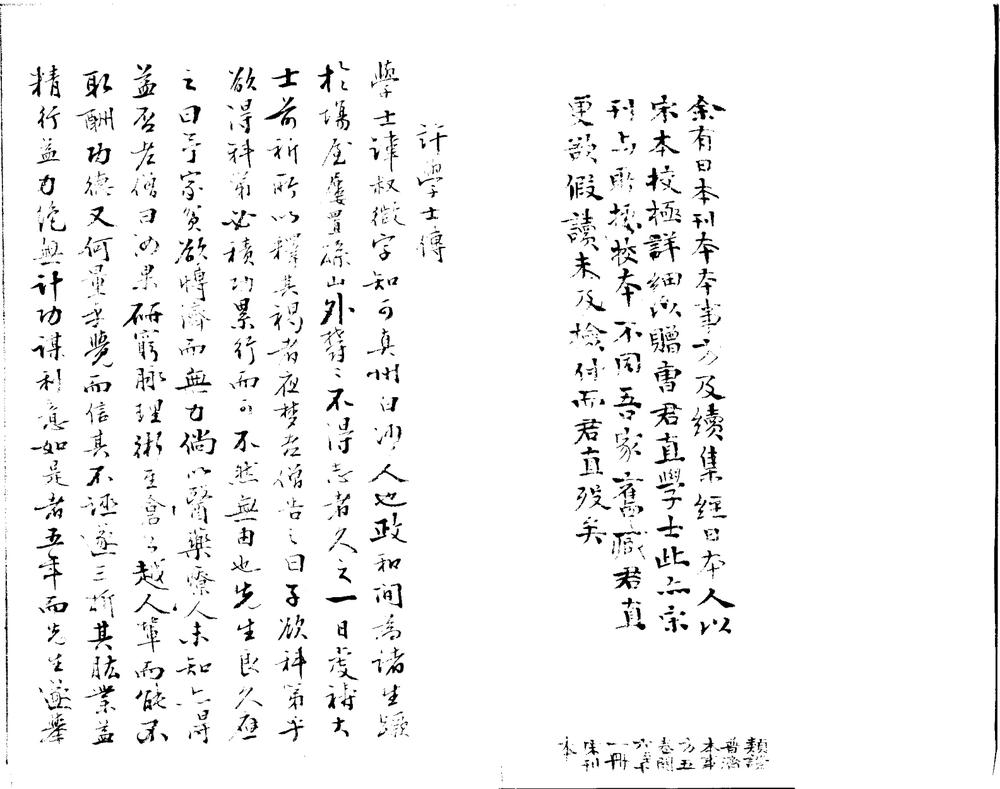 余有日本刊本本事方及續集經日本人以
宋本挍極詳細以贈曹君直學士此亦宋
刊與所據挍本不同吾家舊藏君直
更欲假讀未及檢付而君直歿矣
類證
普濟
本事
方五
卷闕
一冊
宋刊
本
許學士傳
學士諱叔微字知可真州白沙人也政和間為諸生蹶
於場屋屢置孫山外鬱〻不得志者久之一日虔禱大
士前祈所以釋其褐者夜梦老僧告之曰子欲科第乎
欲得科第必積功累行而可不然無由也先生良久應
之曰予家貧欲博濟而無力倘以醫藥療人未知亦得
益否老僧曰汝果研窮脉理術至倉公越人輩而能不
取酬功德又何量乎覺而信其不誣遂三折其肱業益
精行益力絶無計功謀利意如是者五年而先生遂舉